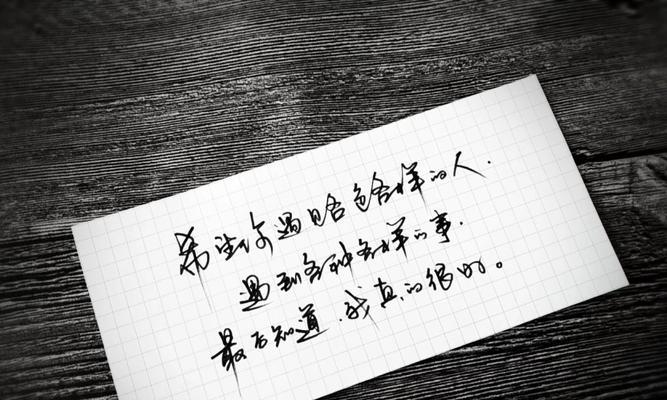 希望你遇见各色各样的人.
遇到各种各样的事.
最后知道.我真的很好。